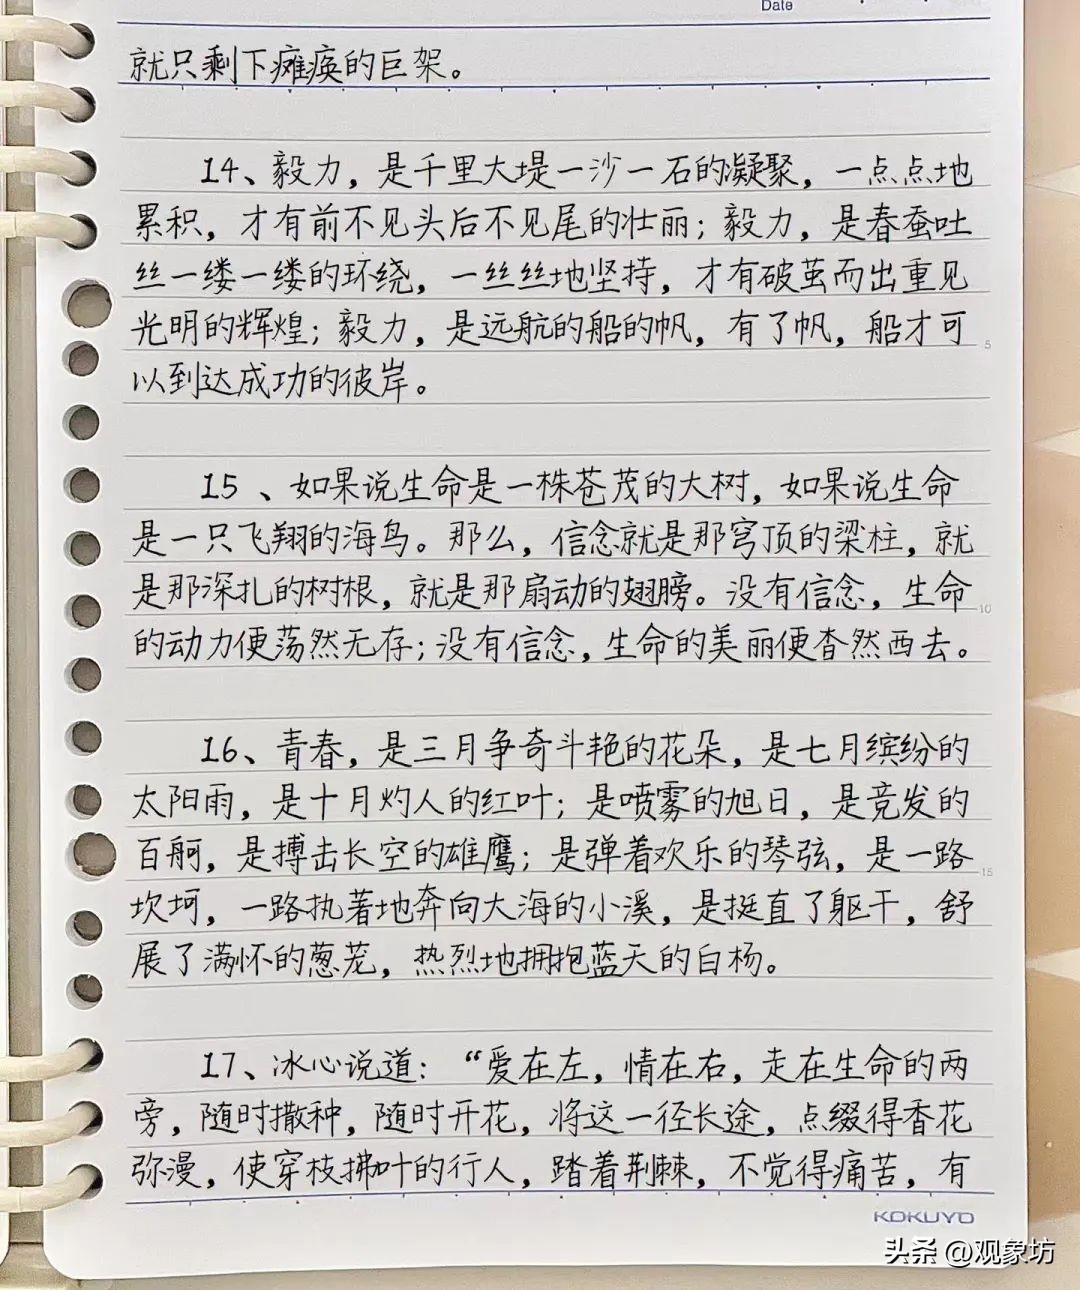 Date
就只剩下瘫痪的巨架。
14、毅力，是千里大堤一沙一石的凝聚，一点点地
累积，才有前不见头后不见尾的壮丽；毅力，是春蚕吐
丝一缕一缕的环绕，一丝丝地坚持，才有破茧而出重见
光明的辉煌；毅力，是远航的船的帆，有了帆，船才可
5
以到达成功的彼岸。
15、如果说生命是一株苍茂的大树，如果说生命
是一只飞翔的海鸟。那么，信念就是那穹顶的梁柱，就
是那深扎的树根，就是那扇动的翅膀。没有信念，生命
10
的动力便荡然无存；没有信念，生命的美丽便杳然西去。
16、青春，是三月争奇斗艳的花朵，是七月缤纷的
太阳雨，是十月灼人的红叶；是喷雾的旭日，是竞发的
百舸，是搏击长空的雄鹰；是弹着欢乐的琴弦，是一路
15
坎坷，一路执著地奔向大海的小溪，是挺直了躯干，舒
展了满怀的葱茏，热烈地拥抱蓝天的白杨。
17、冰心说道：“爱在左，情在右，走在生命的两
旁，随时撒种，随时开花，将这一径长途，点缀得香花
弥漫，使穿枝拂叶的行人，踏着荆棘，不觉得痛苦，有
KOKUYO
头条 @观象坊